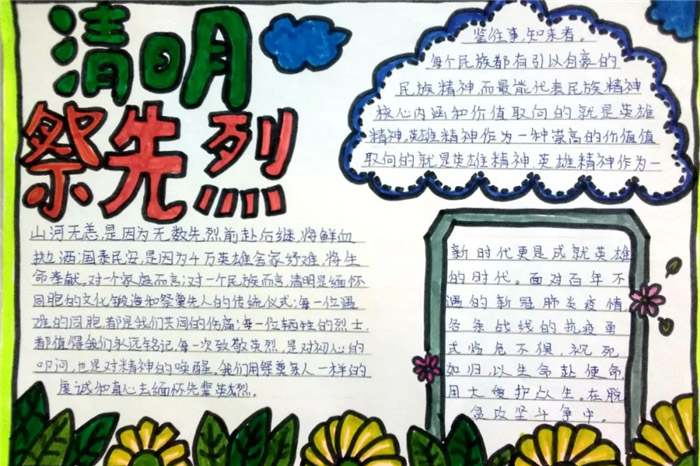 清明
祭先烈
山河无恙,是因为无数先烈前赴后继,将鲜血
抛洒;国泰民安,是因为千万英雄舍家纾难,将生
命奉献。对一个家庭而言;对一个民族而言,清明是缅怀
同胞的文化锻造和祭奠先人的传统仪式;每一位遇
难的同胞,都是我们共同的伤痛;每一位牺牲的烈士,
都值得我们永远铭记,每一次致敬英烈,是对初心的
叩问,也是对精神的唤醒。我们用祭奠亲人一样的
虔诚和真心去缅怀先辈英烈。
鉴往事,知来者。
每个民族都有引以自豪的
民族精神,而最能代表民族精神
核心内涵和价值取向的就是英雄
精神英雄精神作为一种崇高的价值值
取向的就是英雄精神英雄精神作为一
新时代更是成就英雄
的时代。面对百年不
遇的新冠肺炎疫情
各条战线的抗疫勇
士临危不惧、视死
如归,以生命赴使命
用大爱护众生。在脱
贫攻坚斗争中,